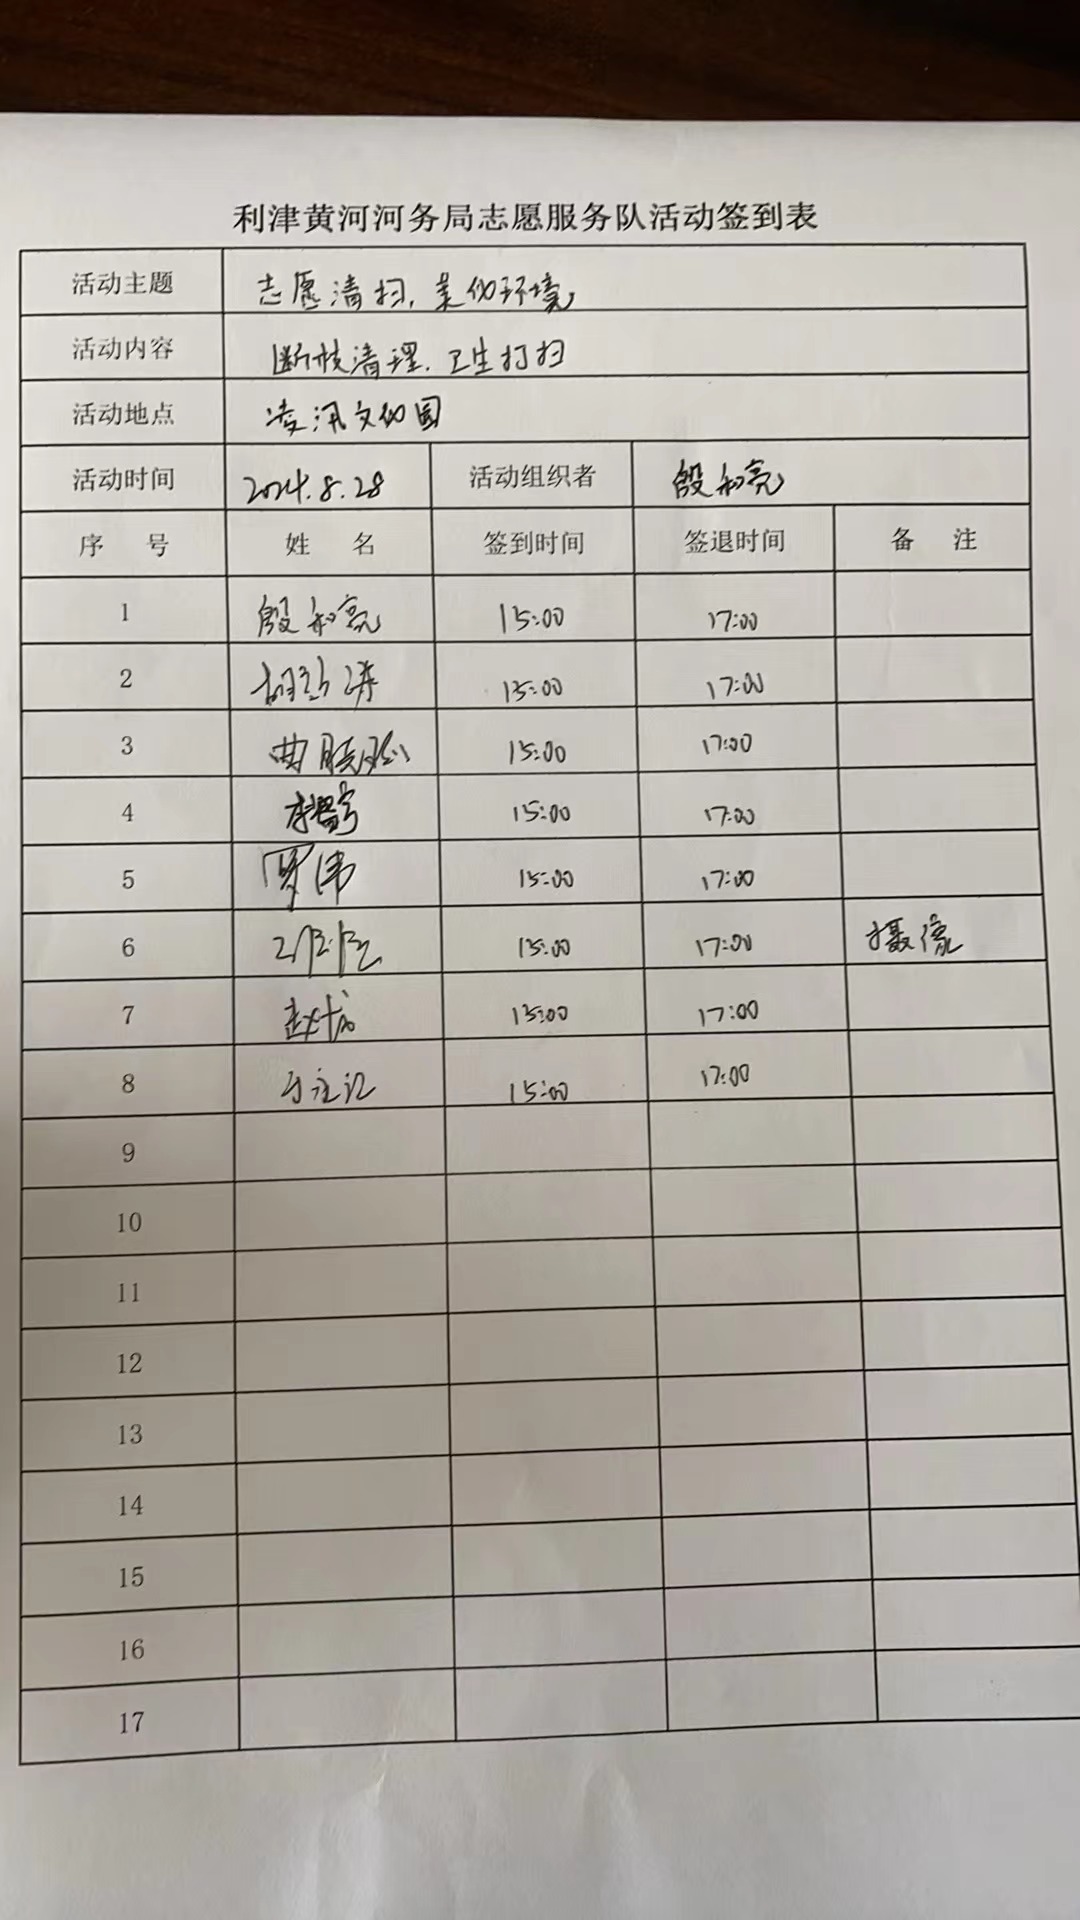 利津黄河河务局志愿服务队活动签到表
活动主题 志愿清扫,美化环境
活动内容 断枝清理.卫生打扫
活动地点 凌汛文化园
活动时间 2024.8.28 活动组织者 殷和亮
序 号 姓 名 签到时间 签退时间 备 注
1 殷和亮 15:00 17:00
2 15:00 17:00
3 15:00 17:00
4 15:00 17:00
5 罗伟 15:00 17:00
6 15:00 17:00 摄像
7 赵龙 15:00 17:00
8 15:00 17:00
9
10
11
12
13
14
15
16
17